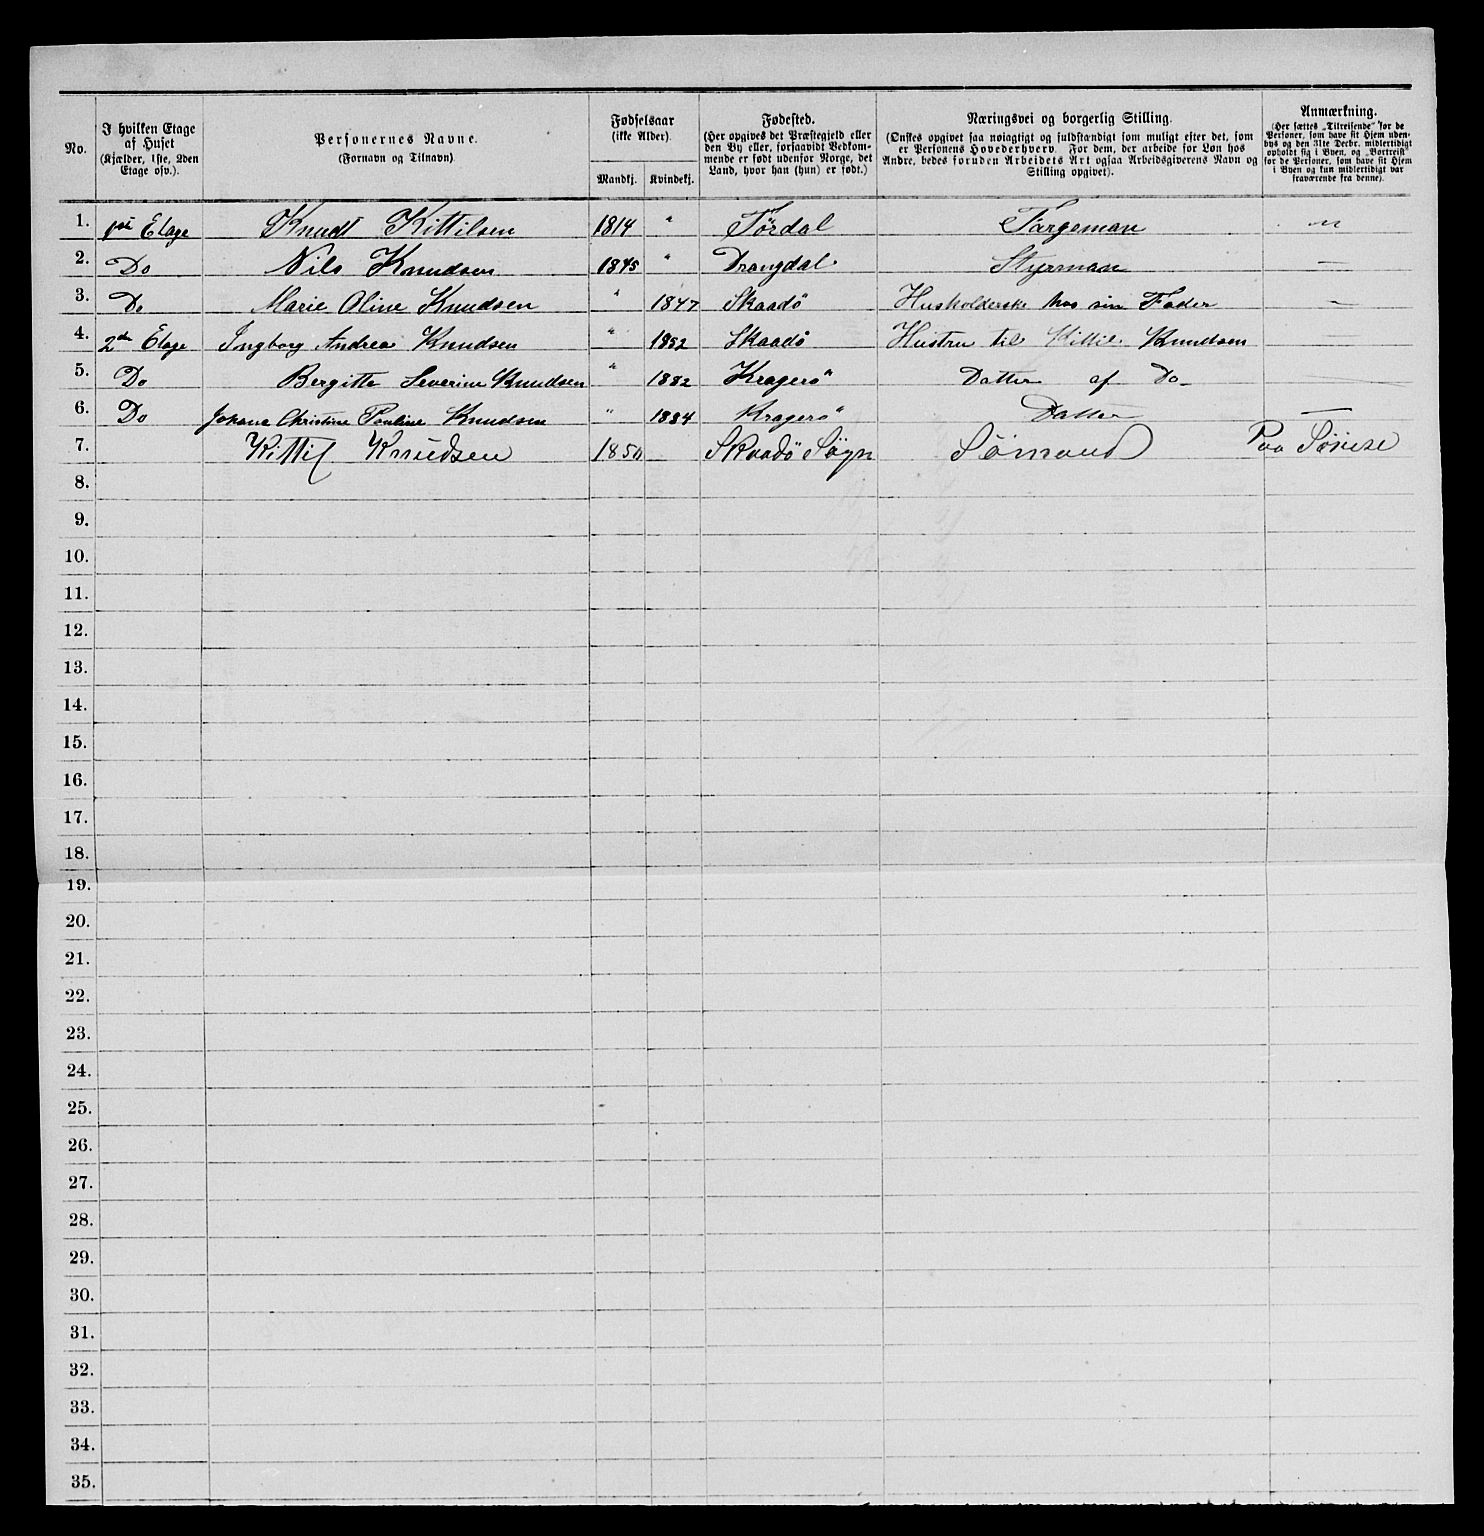 No.
I hvilken Etage af Huset
(Kjælder, 1ste, 2den Etage osv.).
Personernes Navne.
(Fornavn og Tilnavn)
Fødselsaar
(ikke Alder).
Mandkj. Kvindekj.
Fødested.
(Her opgives det Præstegjeld eller
den By eller, forsaavidt Vedkom-
mende er født udenfor Norge, det
Land, hvor han (hun) er født.)
Næringsvei og borgerlig Stilling.
(Ønskes opgivet saa nøiagtigt og fuldstændigt som muligt efter det, som
er Personens Hovederhverv. For dem, der arbeide for Løn hos
Andre, bedes foruden Arbeidets Art ogsaa Arbeidsgiverens Navn og
Stilling opgivet).
Anmærkning.
(Her sættes „Tilreisende“ for de
Personer, som have sit Hjem uden-
bys og den 31te Decbr. midlertidigt
opholdt sig i Byen, og „Bortreist“
for de Personer, som have sit Hjem
i Byen og kun midlertidigt var
fraværende fra denne).
1. 1ste Etage Knudt Kittilsen 1814 " Tørdal Færgeman "
2. Do Nils Knudsen 1845 " Drangdal Styrman —
3. Do Marie Oline Knudsen " 1847 Skaadö Husholderske hos sin Fader —
4. 2den Etage Ingborg Andrea Knudsen " 1852 Skaadö Hustru til Kittil Knudsen —
5. Do Bergitte Severine Knudsen " 1882 Kragerö Datter af Do —
6. Do Johane Christine Pauline Knudsen " 1884 Kragerö Datter —
7. Kittil Knudsen 1850 Skaadö Sogn Sömand Paa Söreise
8.
9.
10.
11.
12.
13.
14.
15.
16.
17.
18.
19.
20.
21.
22.
23.
24.
25.
26.
27.
28.
29.
30.
31.
32.
33.
34.
35.